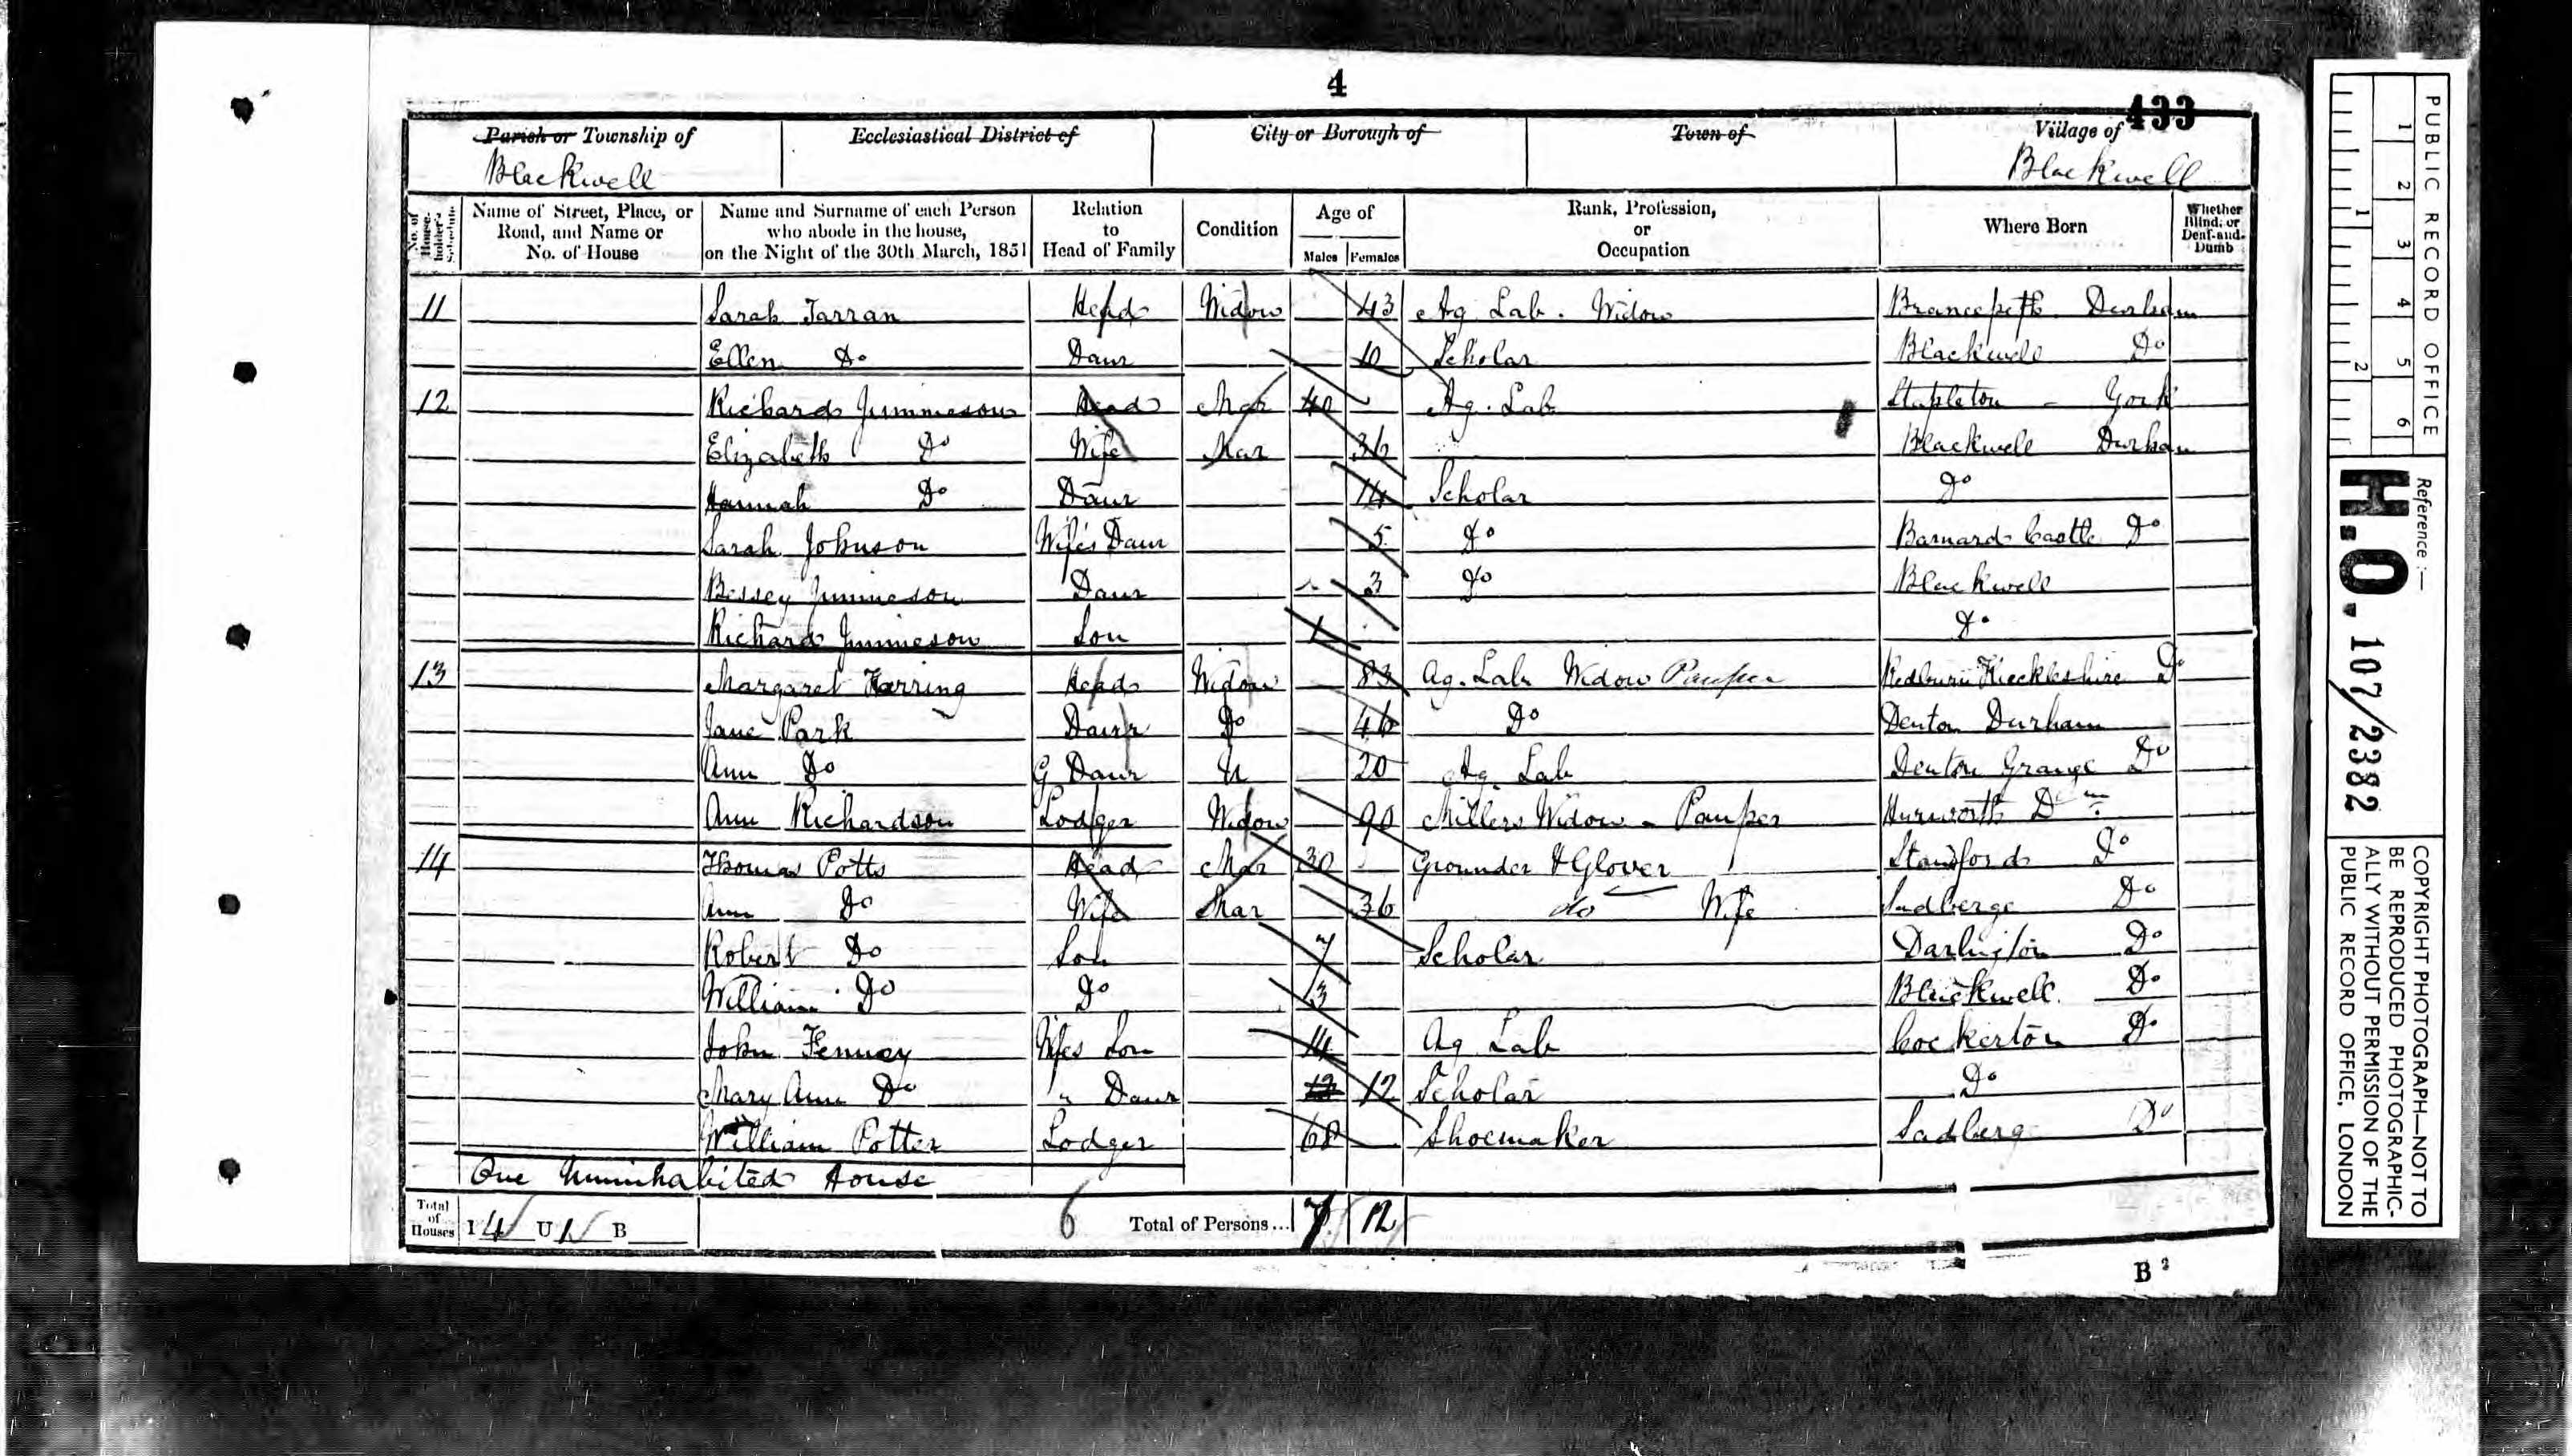 4
433
Parish or Township of Blackwell
Ecclesiastical District of
City or Borough of
Town of
Village of Blackwell
No. of House-holder's Schedule
Name of Street, Place, or Road, and Name or No. of House
Name and Surname of each Person who abode in the house, on the Night of the 30th March, 1851
Relation to Head of Family
Condition
Age of
Males Females
Rank, Profession, or Occupation
Where Born
Whether Blind, or Deaf-and-Dumb
11 Sarah Tarran Head Widow 43 Ag. Lab. Widow Brancepeth Durham
Ellen Do Daur 10 Scholar Blackwell Do
12 Richard Jimmeson Head Mar 40 Ag. Lab Stapleton - York
Elizabeth Do Wife Mar 36 Blackwell Durham
Hannah Do Daur 14 Scholar Do
Sarah Johnson Wife's Daur 5 Do Barnard Castle Do
Bessey Jimmeson Daur 3 Do Blackwell
Richard Jimmeson Son 1 Do
13 Margaret Harring Head Widow 83 Ag. Lab Widow Pauper Redburn Do
Jane Park Daur Do 46 Do Denton Durham
Ann Do G Daur U 20 Ag Lab Denton Grange Do
Ann Richardson Lodger Widow 90 Millers Widow - Pauper Hurworth Dm
14 Thomas Potts Head Mar 30 Grounder & Glover Do
Ann Do Wife Mar 36 do Wife Sadberge Do
Robert Do Son 7 Scholar Darlington Do
William Do Do 3 Blackwell Do
John Fenney Wifes Son 14 Ag Lab Cockerton Do
Mary Ann Do " Daur 12 12 Scholar Do
William Potter Lodger 68 Shoemaker Sadberg Do
One Uninhabited House
Total of Houses I 4 U 1 B
6 Total of Persons... 7 12
B 2
PUBLIC RECORD OFFICE
1 2 3 4 5 6
1 2
Reference :—
H.O. 107/2382
COPYRIGHT PHOTOGRAPH—NOT TO
BE REPRODUCED PHOTOGRAPHIC-
ALLY WITHOUT PERMISSION OF THE
PUBLIC RECORD OFFICE, LONDON